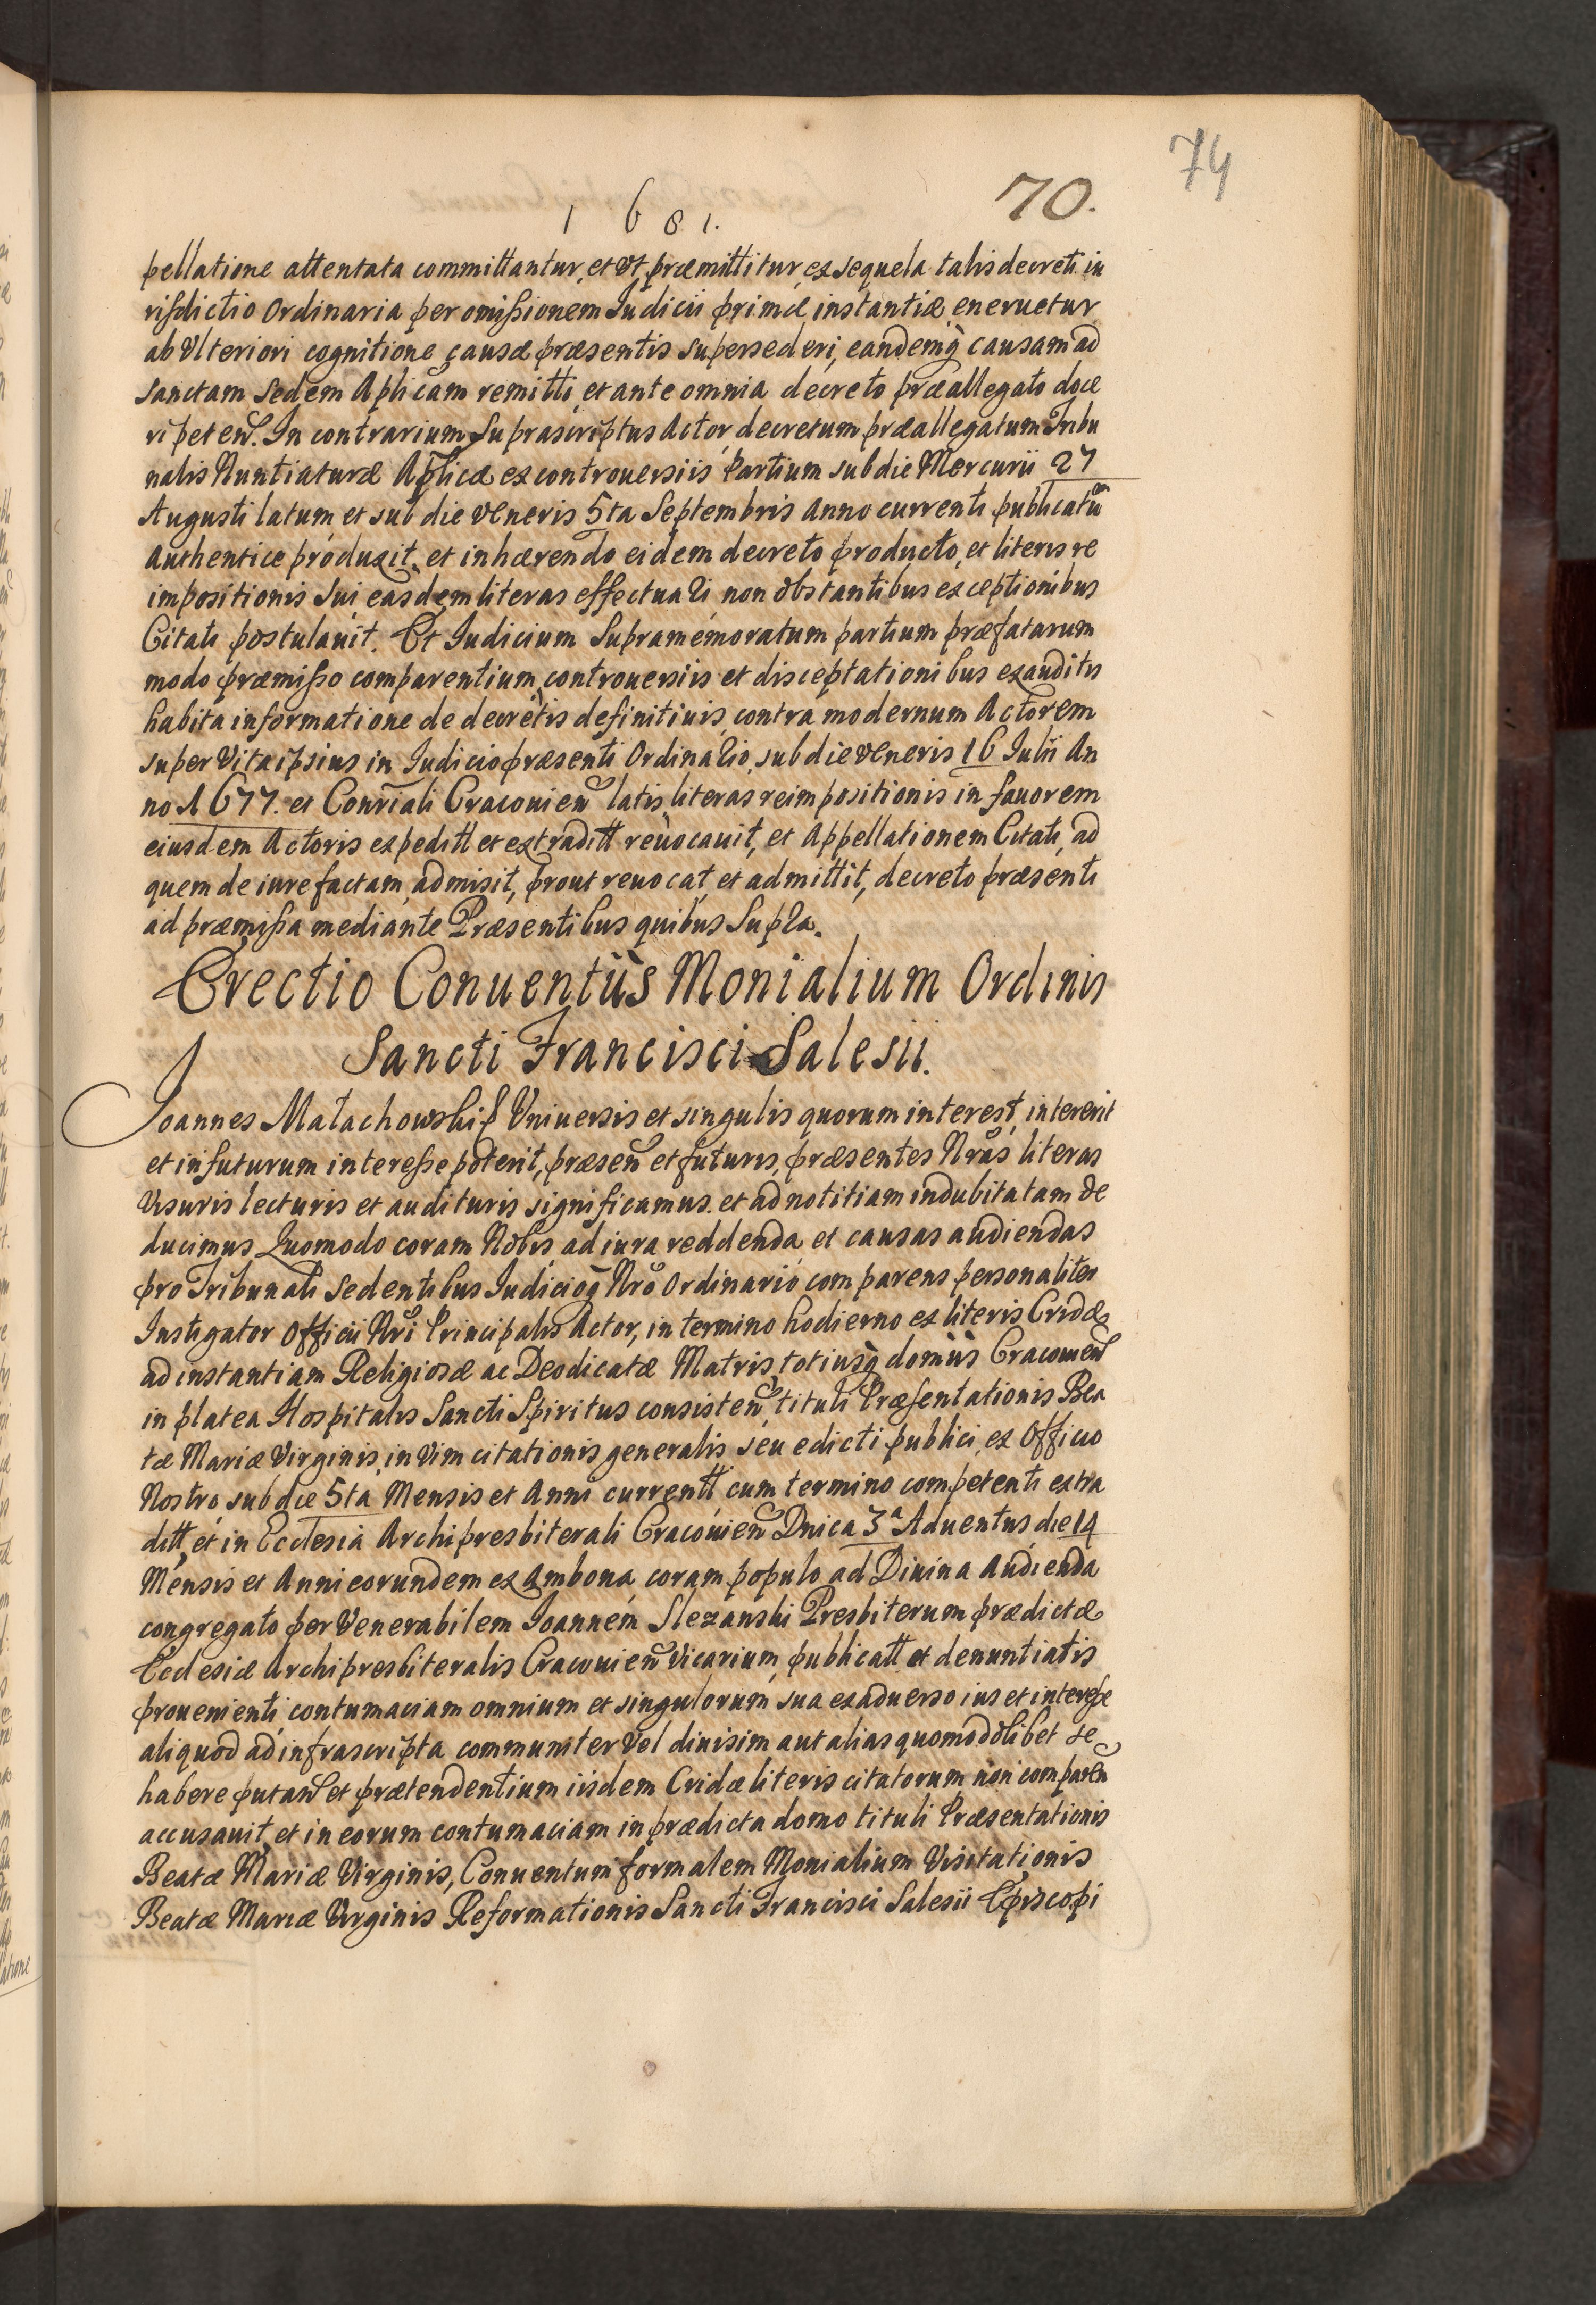 74
1681.
70.
pellatione attentata committantur, et vt præmittitur, ex sequela talis decreti iu
risdictio Ordinaria per omissionem Iudicii primæ instantiæ eneruetur
ab Vlteriori cognitione causæ præsentis supersederi, eandemq̀ causam ad
sanctam Sedem Aplicam remitti, et ante omnia decreto præallegato doce
ri peteñ. In contrarium Suprascriptus Actor decretum præallegatum Tribu
nalis Nuntiaturæ Aplicæ ex controuersiis Partium sub die Mercurii 27
Augusti latum et sub die Veneris 5ta Septembris Anno currenti publicatũ
Authentice produxit. et inhærendo eidem decreto producto, et literis re
impositionis sui easdem literas effectuari non obstantibus exceptionibus
Citati postulauit. Et Iudicium Supramemoratum partium præfatarum
modo præmisso comparentium controuersiis et disceptationibus exauditis
habita informatione de decretis definitiuis, contra modernum Actorem
super Vita ipsius in Iudicio præsenti Ordinario, sub die Veneris 16 Iulii An
no 1677. et Conrīali Cracouieñ latis literas reimpositionis in fauorem
eiusdem Actoris expeditt et extraditt reuocauit, et Appellationem Citati, ad
quem de iure factam, admisit, prout reuocat, et admittit, decreto præsenti
ad præmissa mediante Præsentibus quibus Supra.
Erectio Conuentûs Monialium Ordinis
Sancti Francisci Salesii.
Ioannes Małachowski & Vniuersis et singulis quorum interest, intererit
et in futurum interesse poterit, præseñ et futuris, præsentes Nrãs literas
Visuris lecturis et audituris significamus. et ad notitiam indubitatam de
ducimus Quomodo coram Nobis ad iura reddenda et causas audiendas
pro Tribunali Sedentibus Iudicioq̀ Nrõ Ordinario comparens personaliter
Instigator Officii Nrĩ Principalis Actor, in termino hodierno ex literis Cridæ
ad instantiam Religiosæ ac Deodicatæ Matris, totiusq̀ domûs Cracouieñ
in platea Hospitalis Sancti Spiritus consisteñ, tituli Præsentationis Bea
tæ Mariæ Virginis, in Vim citationis generalis seu edicti publici, ex Officio
Nostro sub die 5ta Mensis et Anni currentt cum termino competenti extra
ditt, et in Ecclesia Archipresbiterali Cracouieñ Dnica 3ª Aduentus die 14
Mensis et Anni eorundem ex Ambona coram populo ad Diuina Audienda
congregato per Venerabilem Ioannem Slezanski Presbiterum prædictæ
Ecclesiæ Archipresbiteralis Cracouieñ Vicarium, publicatt et denuntiatis
prouenienti contumaciam omnium et singulorum sua exaduerso ius et interesse
aliquod ad infrascripta communiter Vel diuisim aut alias quomodolibet se
habere putañ et prætendentium iisdem Cridæ literis citatorum non compareñ
accusauit, et in eorum contumaciam in prædicta domo tituli Præsentationis
Beatæ Mariæ Virginis, Conuentum formalem Monialium Visitationis
Beatæ Mariæ Virginis Reformationis Sancti Francisci Salesii Episcopi